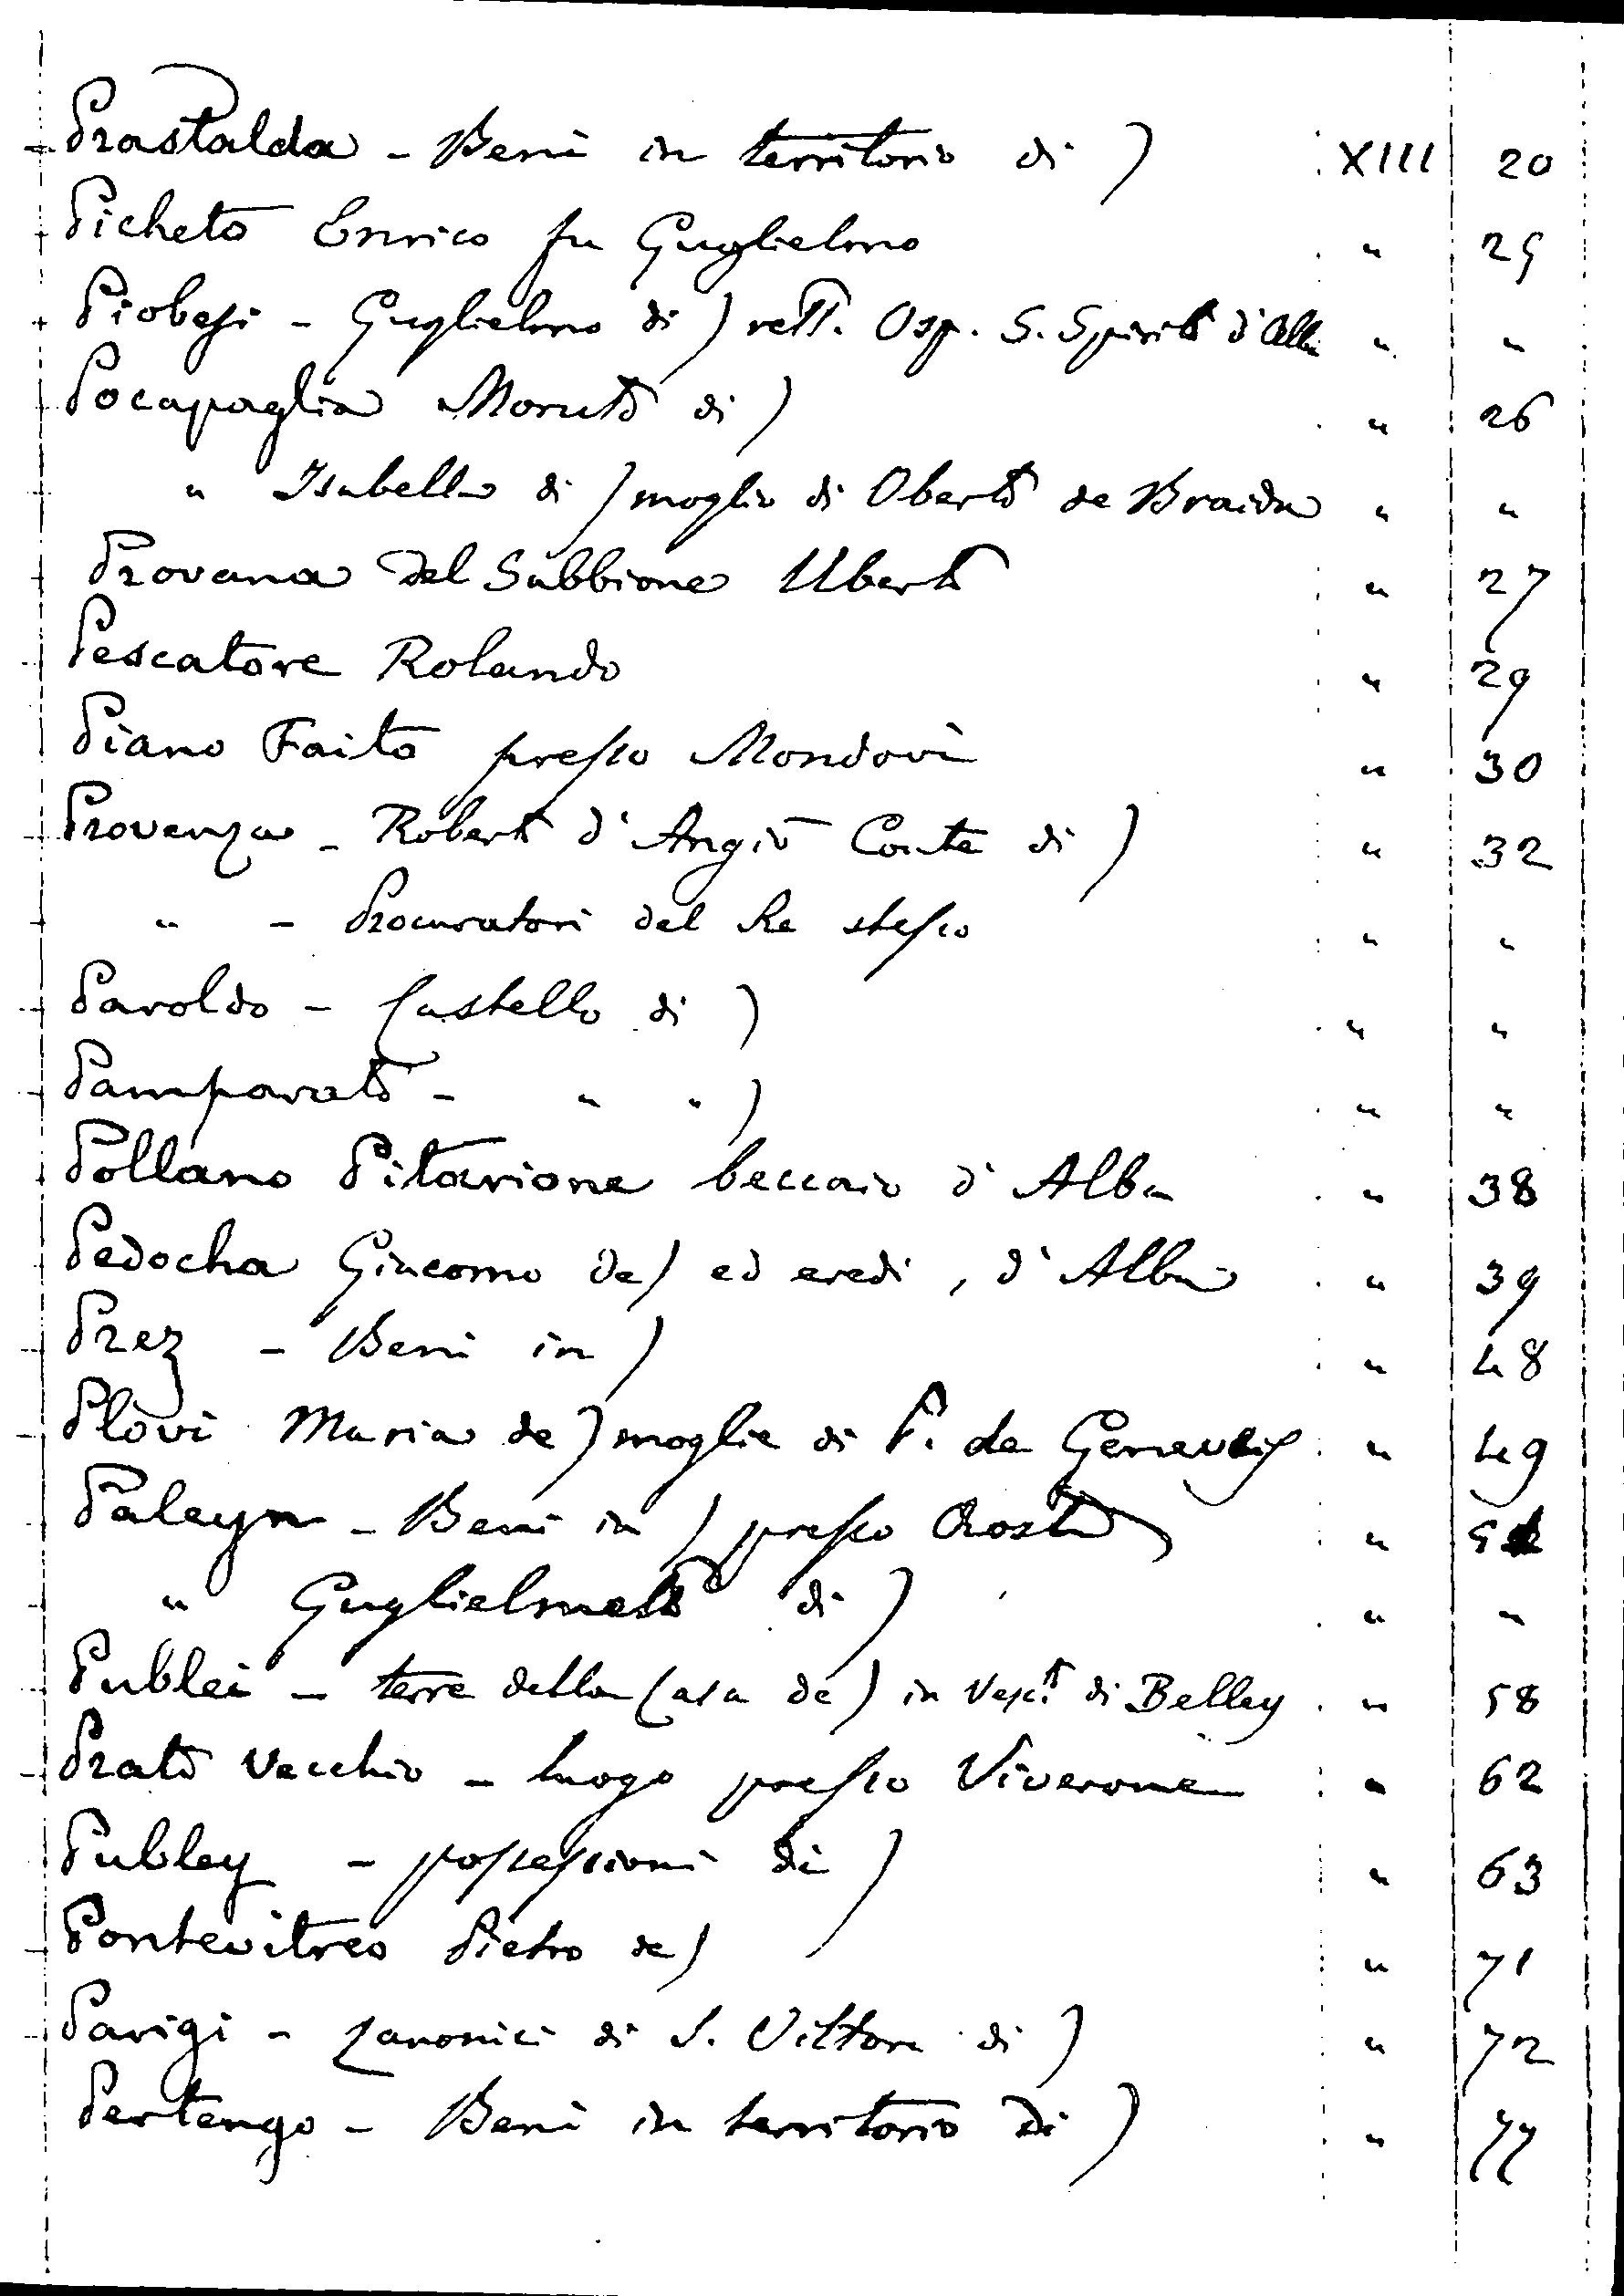 Prastalda - Beni in territorio di ) XIII 20
Picheto Enrico fu Guglielmo " 25
Piobesi - Guglielmo di ) rett. Osp. S. Spirito d'Alba " "
Pocapaglia Moruto di ) " 26
" Isabella di ) moglie di Oberto de Braida " "
Provana del Sabbione Uberto " 27
Pescatore Rolando " 29
Piano Faito presso Mondovì " 30
Provenza - Roberto d'Angiò Conte di ) " 32
" - Procuratori del Re stesso " "
Paroldo - Castello di ) " "
Pamparato - " " ) " "
Pollano Pitavione beccaio d'Alba " 38
Pedocha Giacomo de ) ed eredi, d'Alba " 39
Prez - Beni in ) " 48
Plovi Maria de ) moglie di P. de Genevesis " 49
Paleyn - Beni in ) presso Aosta "
" Guglielmeto di ) " "
Publei - terre della Casa de ) in Vesc.to di Belley " 58
Prato Vecchio - luogo presso Viverone " 62
Publey - possessioni di ) " 63
Pontevitreo Pietro de ) " 71
Parigi - Canonici di S. Vittore di ) " 72
Pertengo - Beni in territorio di ) " 77